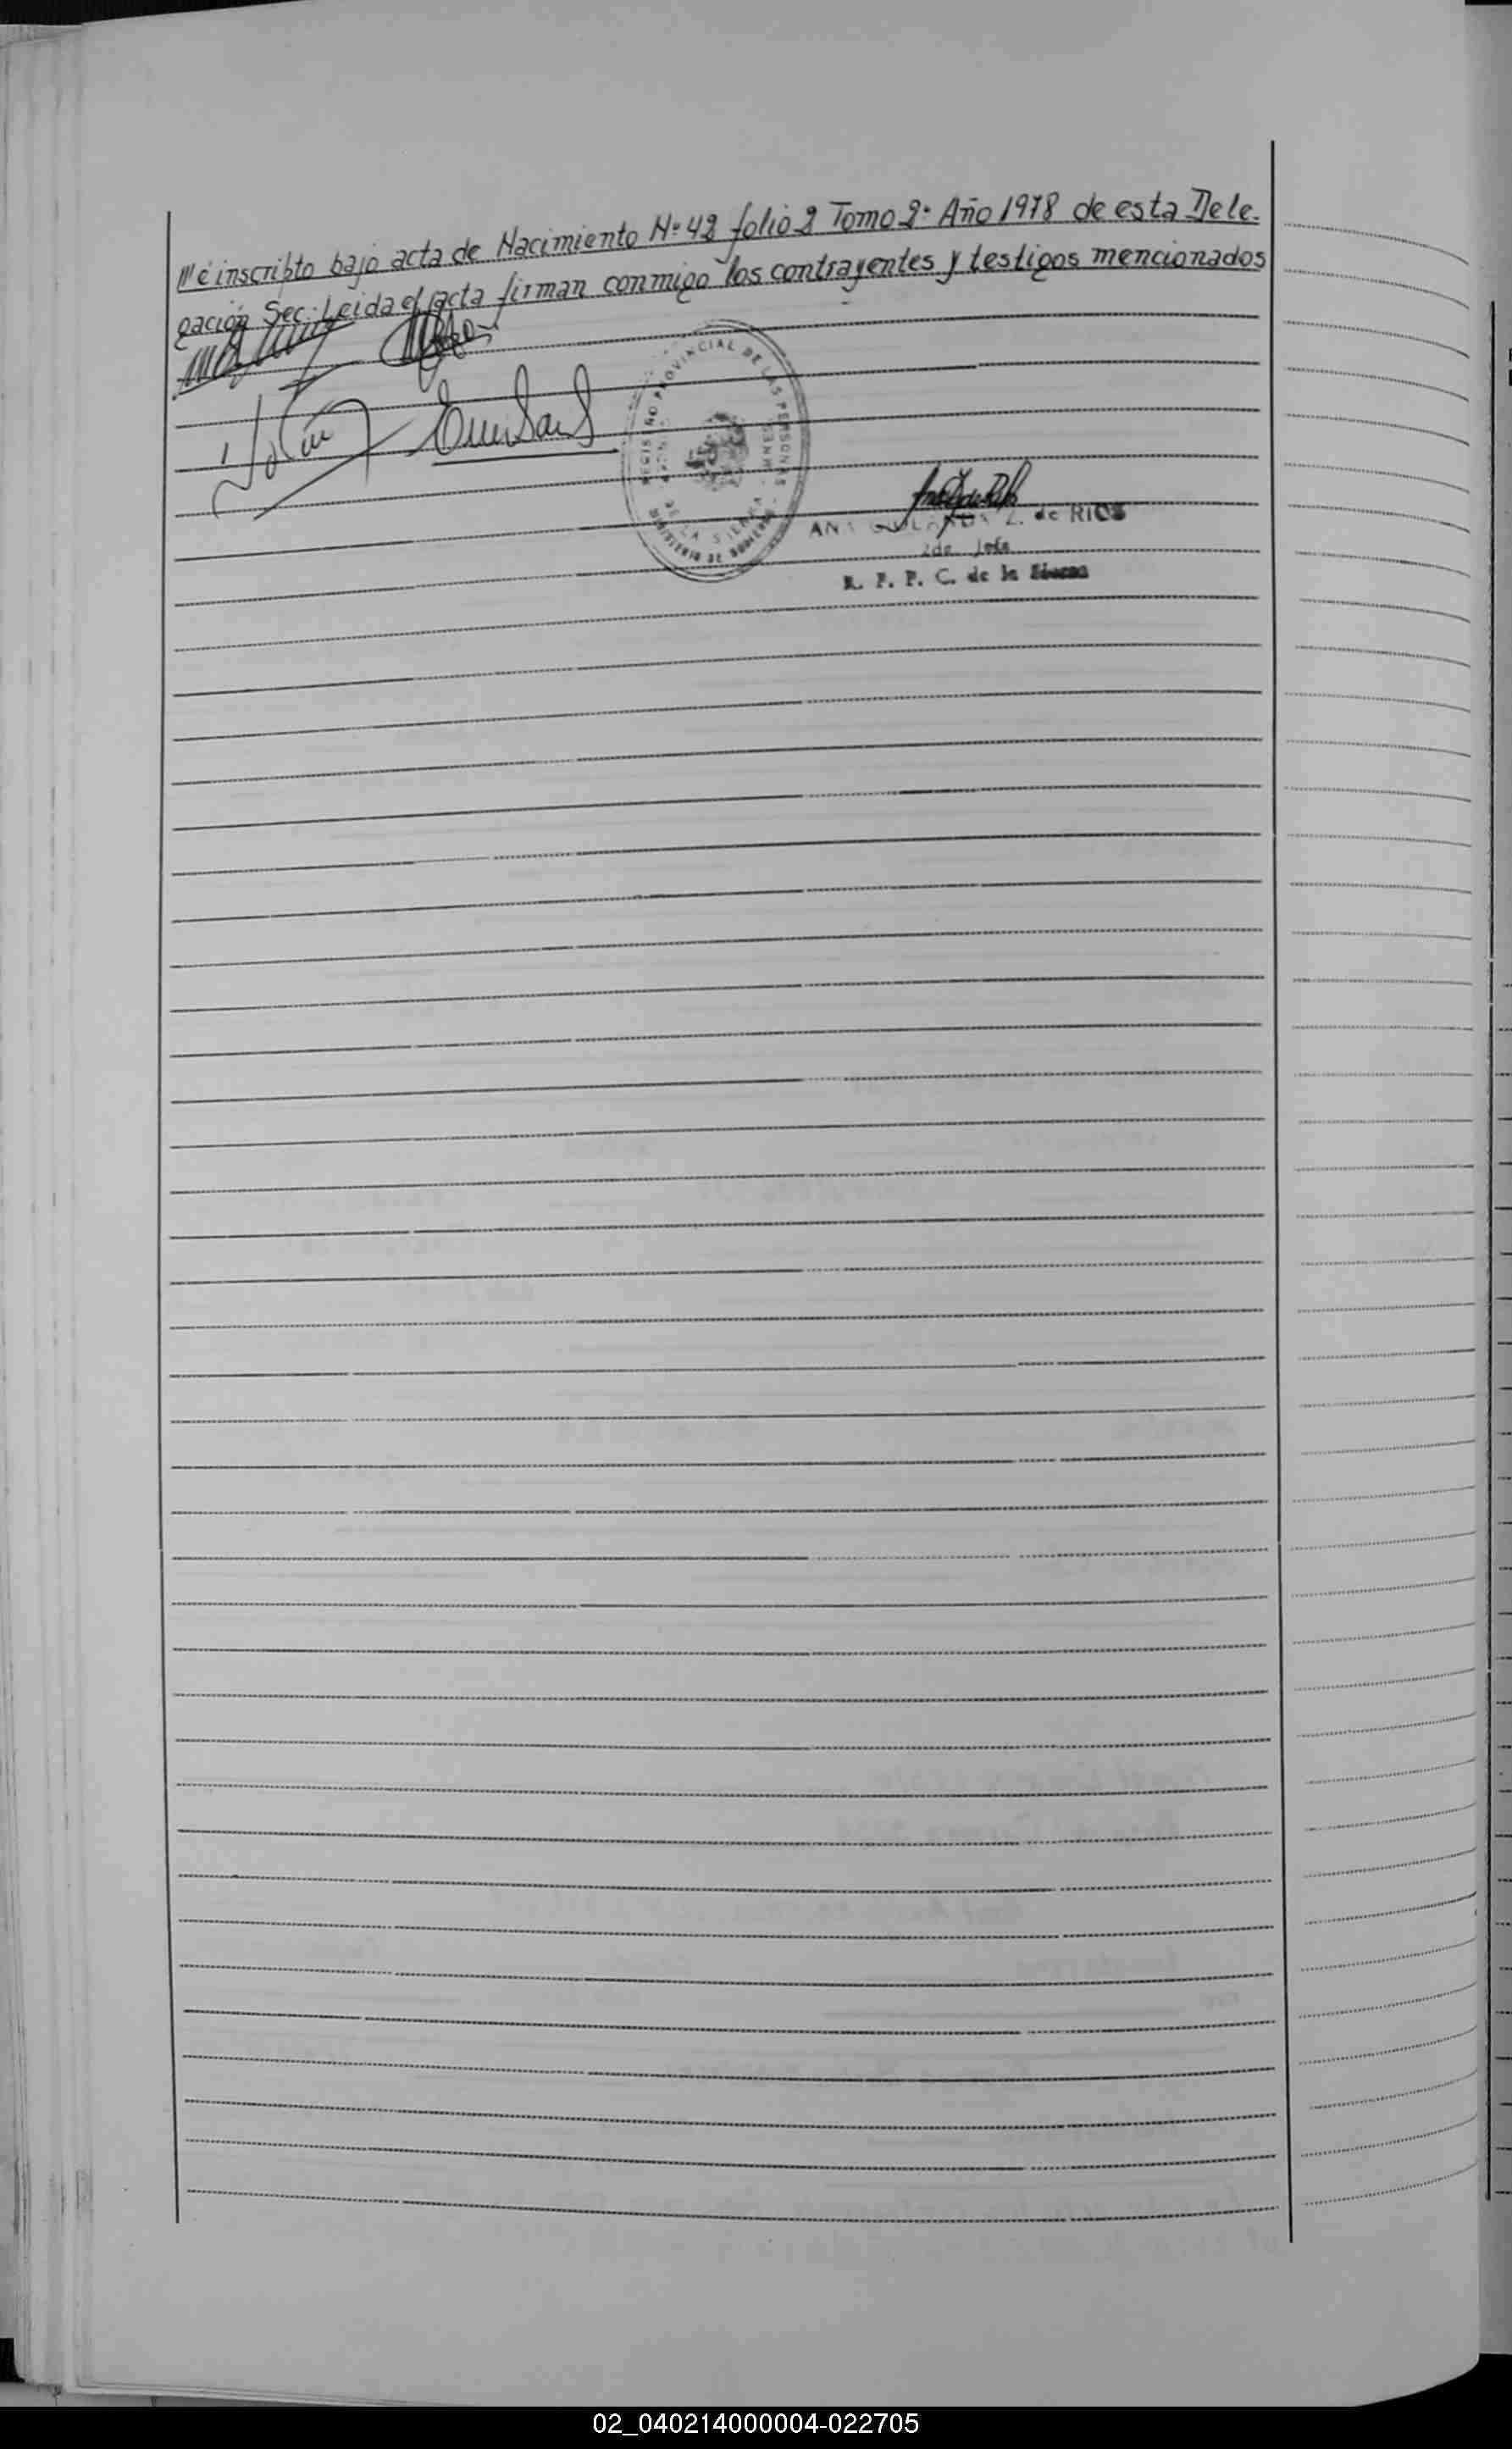 inscripto bajo acta de Nacimiento Nº 42 folio 2 Tomo 2º Año 1978 de esta Dele-
gación Sec. Leida el acta firman conmigo los contrayentes y testigos mencionados
REGISTRO PROVINCIAL DE LAS PERSONAS
DE LA SIERRA
MINISTERIO DE GOBIERNO
de RIOS
2da Jefe
R. P. P. C. de la Sierra
02_040214000004-022705